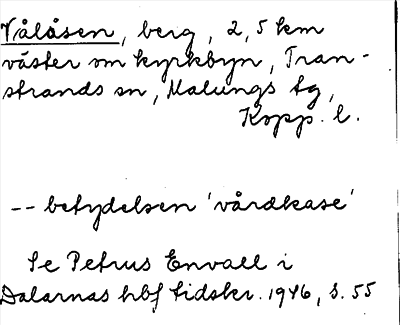 Vålåsen, berg, 2,5 km
väster om kyrkbyn, Tran-
strands sn, Malungs tg,
Kopp. l.
-- betydelsen 'vårdkase'
Se Petrus Envall i
Dalarnas hbf tidskr. 1946, s. 55